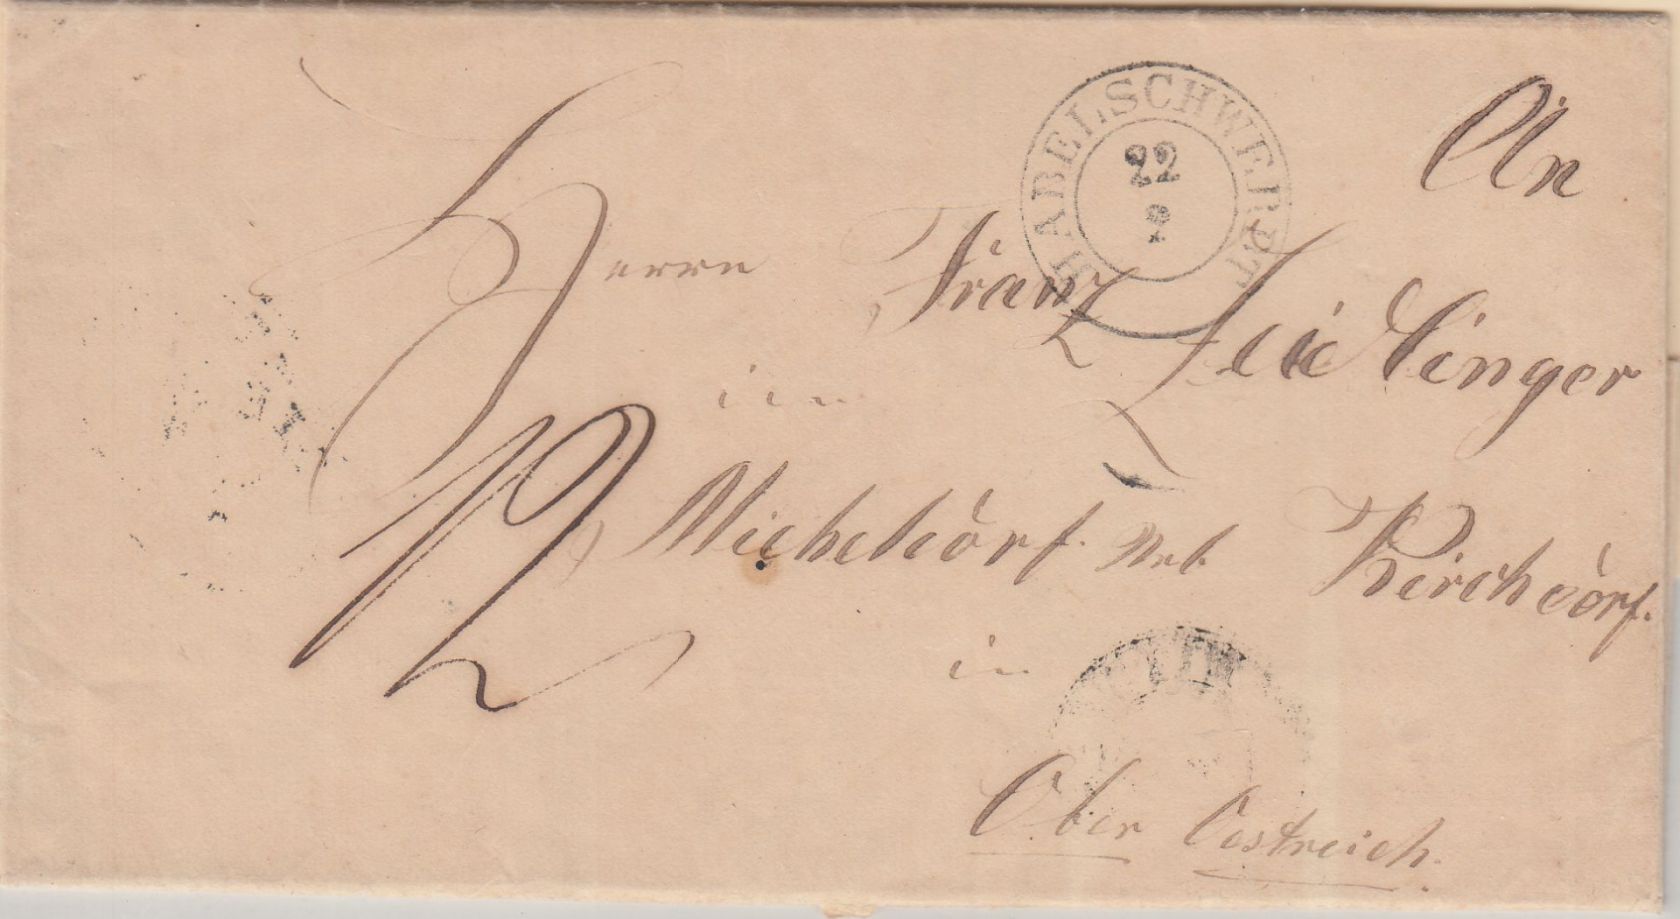 HABELSCHWERDT
22
9
An
Herrn Franz Zeitlinger
in
12
Micheldorf. Kirchdorf.
in
Ober Oestreich.